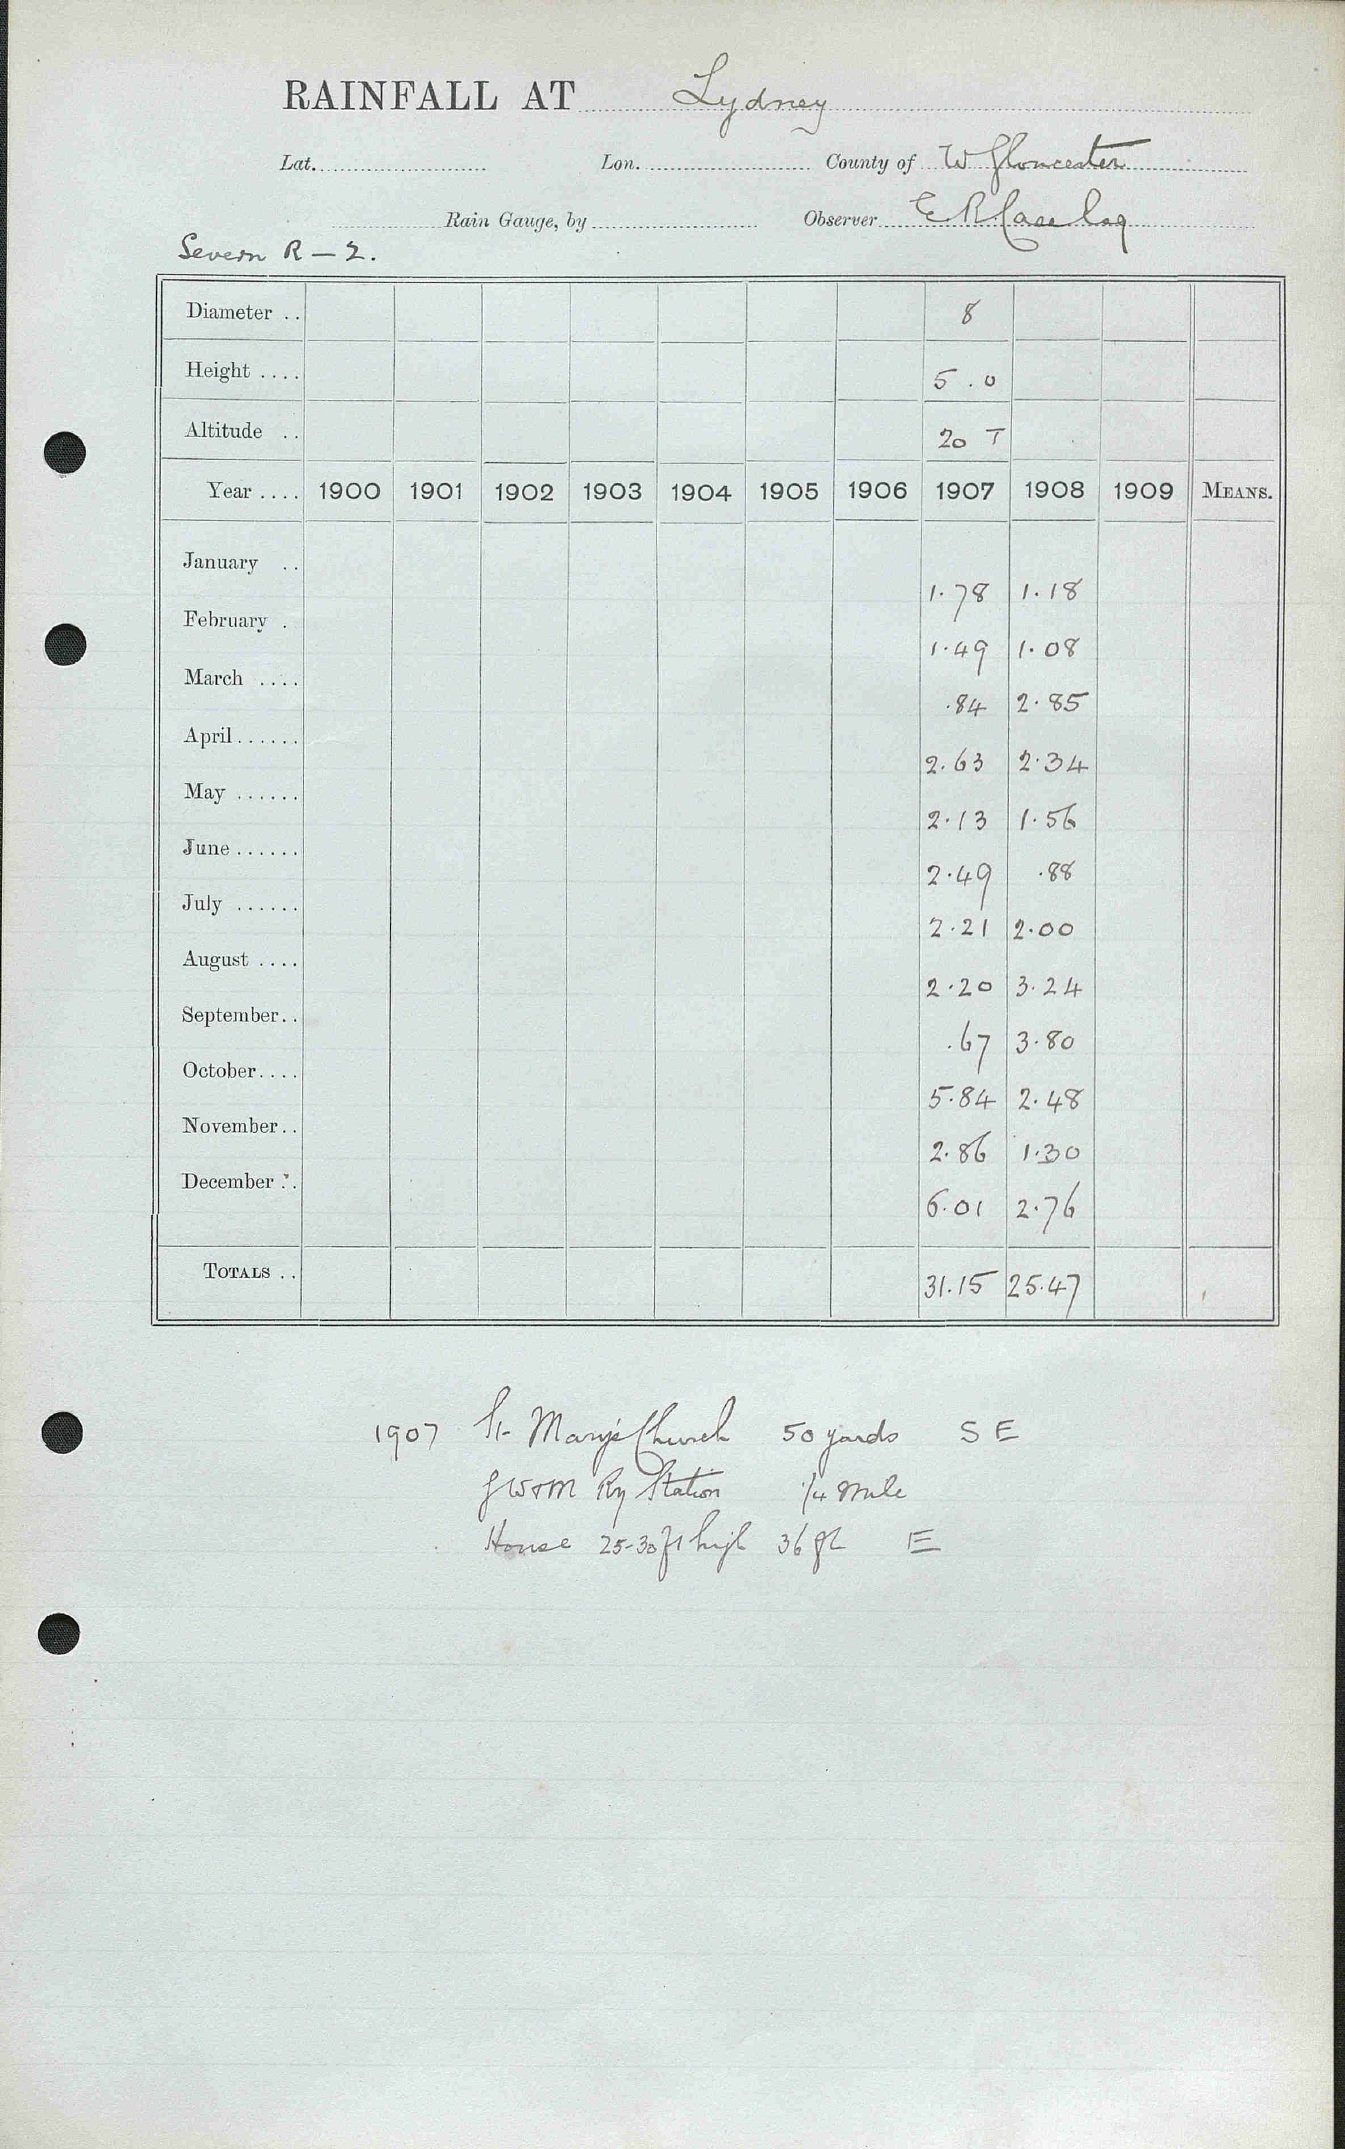 RAINFALL AT Lydney
Lat. Lon. County of W Gloucester
Rain Gauge, by Observer E R Case Esq
Severn R – 2.
Diameter .. 8
Height .... 5.0
Altitude .. 20 T
Year .... 1900 1901 1902 1903 1904 1905 1906 1907 1908 1909 MEANS.
January .. 1.78 1.18
February . 1.49 1.08
March .... .84 2.85
April ...... 2.63 2.34
May ...... 2.13 1.56
June ...... 2.49 .88
July ...... 2.21 2.00
August .... 2.20 3.24
September.. .67 3.80
October.... 5.84 2.48
November.. 2.86 1.30
December .. 6.01 2.76
TOTALS .. 31.15 25.47
1907 St Mary's Church 50 yards S E
GW&M Ry Station 1/4 mile
House 25-30 ft high 36 ft E